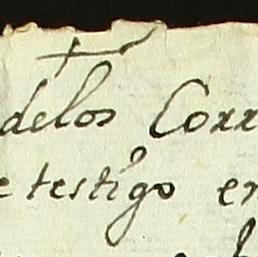 delos Corr
e testigo en